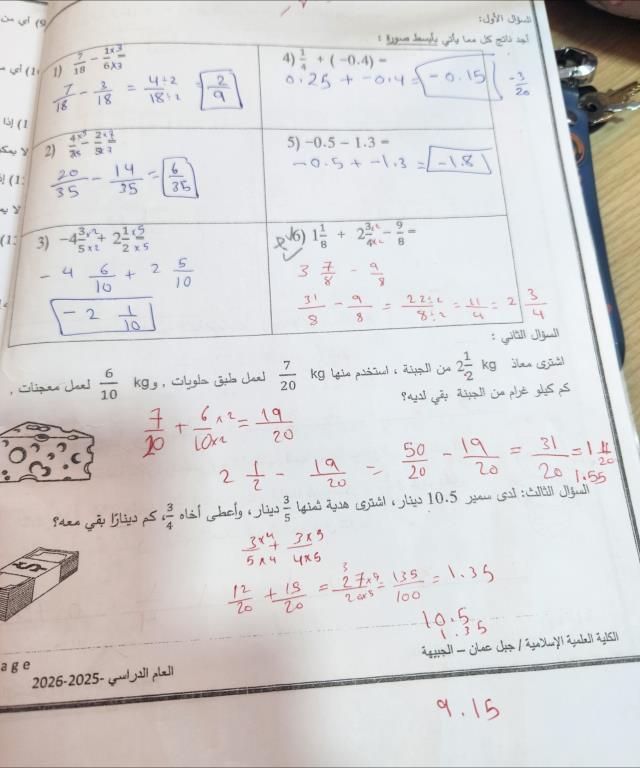 السؤال الأول:
أجد ناتج كل مما يأتي بأبسط صورة :
1) 7/18 − 1×3/6×3
7/18 − 3/18 = 4÷2/18÷2 = 2/9
4) 1/4 + (−0.4) =
0.25 + −0.4 = −0.15
−3/20
2) 4×5/ − 2×7/5×7 =
20/35 − 14/35 = 6/35
5) −0.5 − 1.3 =
−0.5 + −1.3 = −1.8
3) −4 3×2/5×2 + 2 1×5/2×5 =
− 4 6/10 + 2 5/10
− 2 1/10
6) 1 1/8 + 2 3×2/4×2 − 9/8 =
3 7/8 − 9/8
31/8 − 9/8 = 22÷2/8÷2 = 11/4 = 2 3/4
السؤال الثاني :
اشترى معاذ 2 1/2 kg من الجبنة ، استخدم منها 7/20 kg لعمل طبق حلويات , و 6/10 kg لعمل معجنات ,
كم كيلو غرام من الجبنة بقي لديه؟
7/20 + 6×2/10×2 = 19/20
2 1/2 − 19/20 = 50/20 − 19/20 = 31/20 = 1 11/20
1.55
السؤال الثالث: لدى سمير 10.5 دينار، اشترى هدية ثمنها 3/5 دينار، وأعطى أخاه 3/4، كم دينارًا بقي معه؟
3×4/5×4 + 3×5/4×5
12/20 + 15/20 = 27×5/20×5 = 135/100 = 1.35
10.5
1.35
الكلية العلمية الإسلامية / جبل عمان – الجبيهة
age
العام الدراسي -2025-2026
9.15